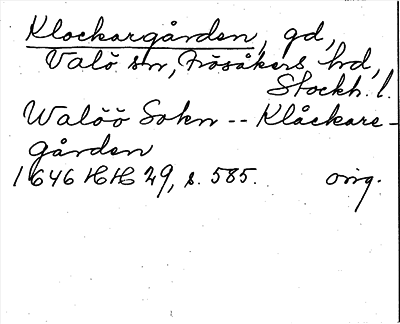 Klockargården, gd,
Valö sn, Frösåkers hd,
Stockh. l.
Walöö Sokn -- Klåckare-
gården
1646 HH 29, s. 585. orig.